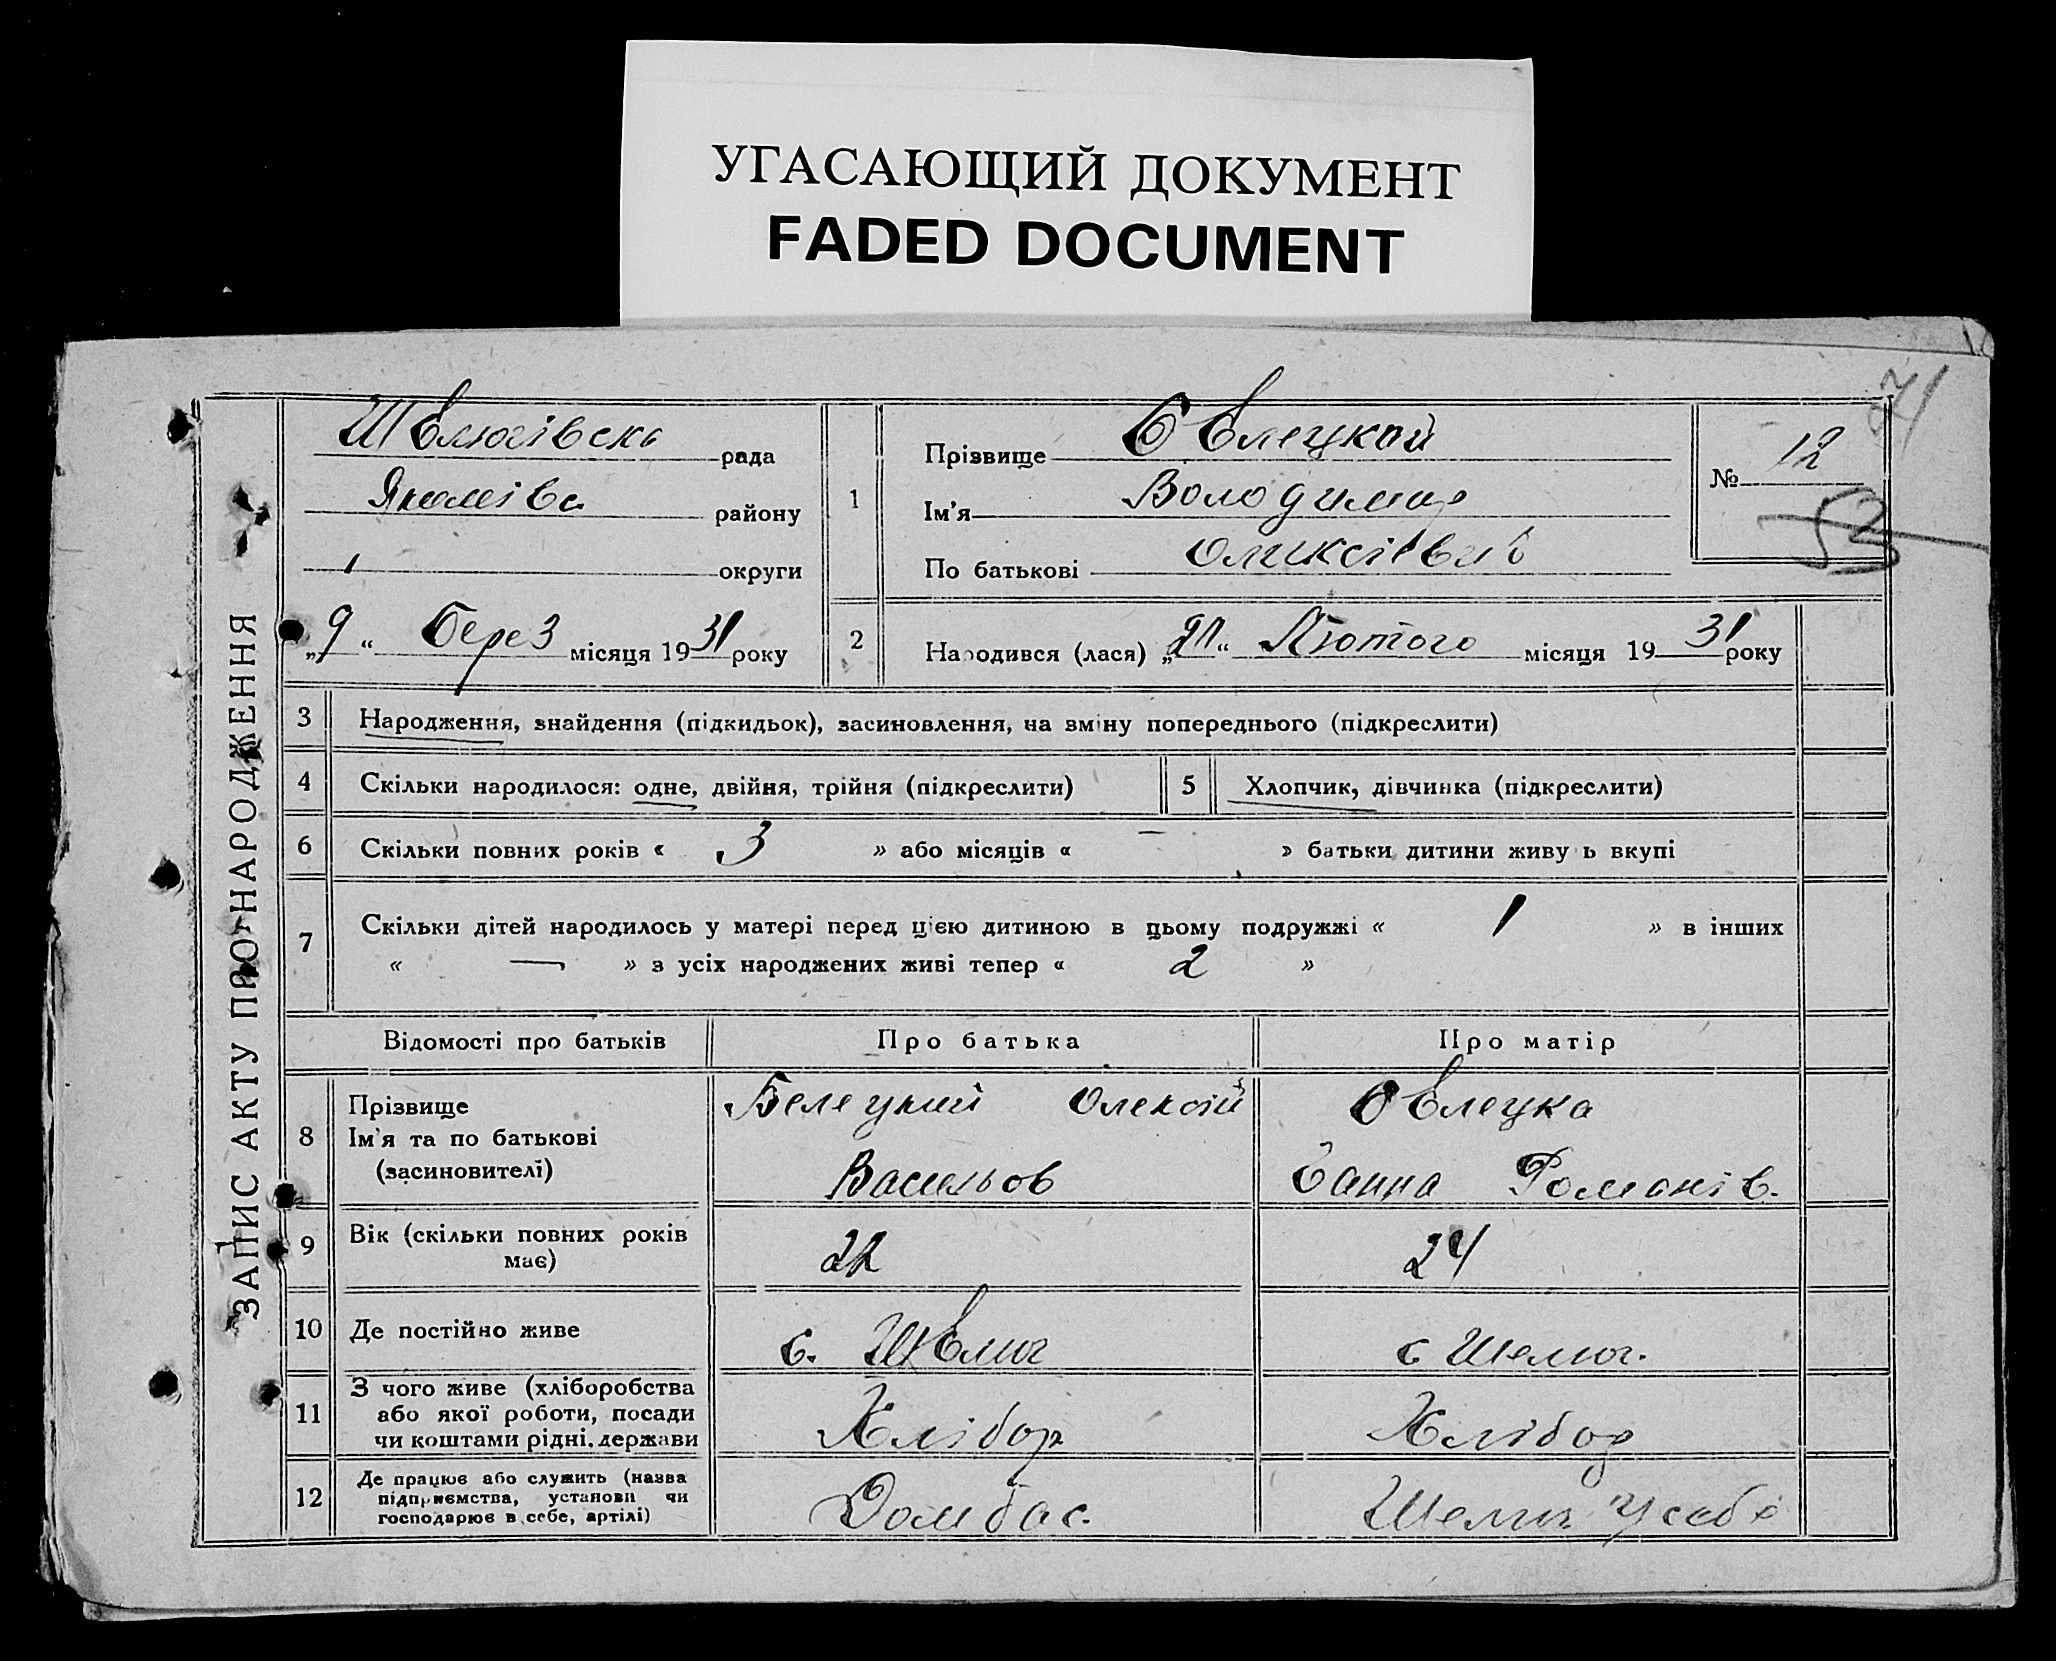 УГАСАЮЩИЙ ДОКУМЕНТ
FADED DOCUMENT
ЗАПИС АКТУ ПРО НАРОДЖЕННЯ
рада
району
округи
„9“ берез місяця 1931 року
1
Прізвище
Ім'я Володимир
По батькові
№ 12
53
2 Народився (лася) „ “ Лютого місяця 1931 року
3 Народження, знайдення (підкидьок), засиновлення, на зміну попереднього (підкреслити)
4 Скільки народилося: одне, двійня, трійня (підкреслити)
5 Хлопчик, дівчинка (підкреслити)
6 Скільки повних років « 3 » або місяців « — » батьки дитини живуть вкупі
7 Скільки дітей народилось у матері перед цією дитиною в цьому подружжі « 1 » в інших
« — » з усіх народжених живі тепер « 2 »
Відомості про батьків Про батька Про матір
8 Прізвище
Ім'я та по батькові
(засиновителі)
Белецкий Олексій
Васильов
Ганна Романів.
9 Вік (скільки повних років
має)
22
24
10 Де постійно живе
с.
с
11 З чого живе (хліборобства
або якої роботи, посади
чи коштами рідні, держави
Хлібор
Хлібор
12 Де працює або служить (назва
підприємства, установи чи
господарює в себе, артілі)
Домбас.